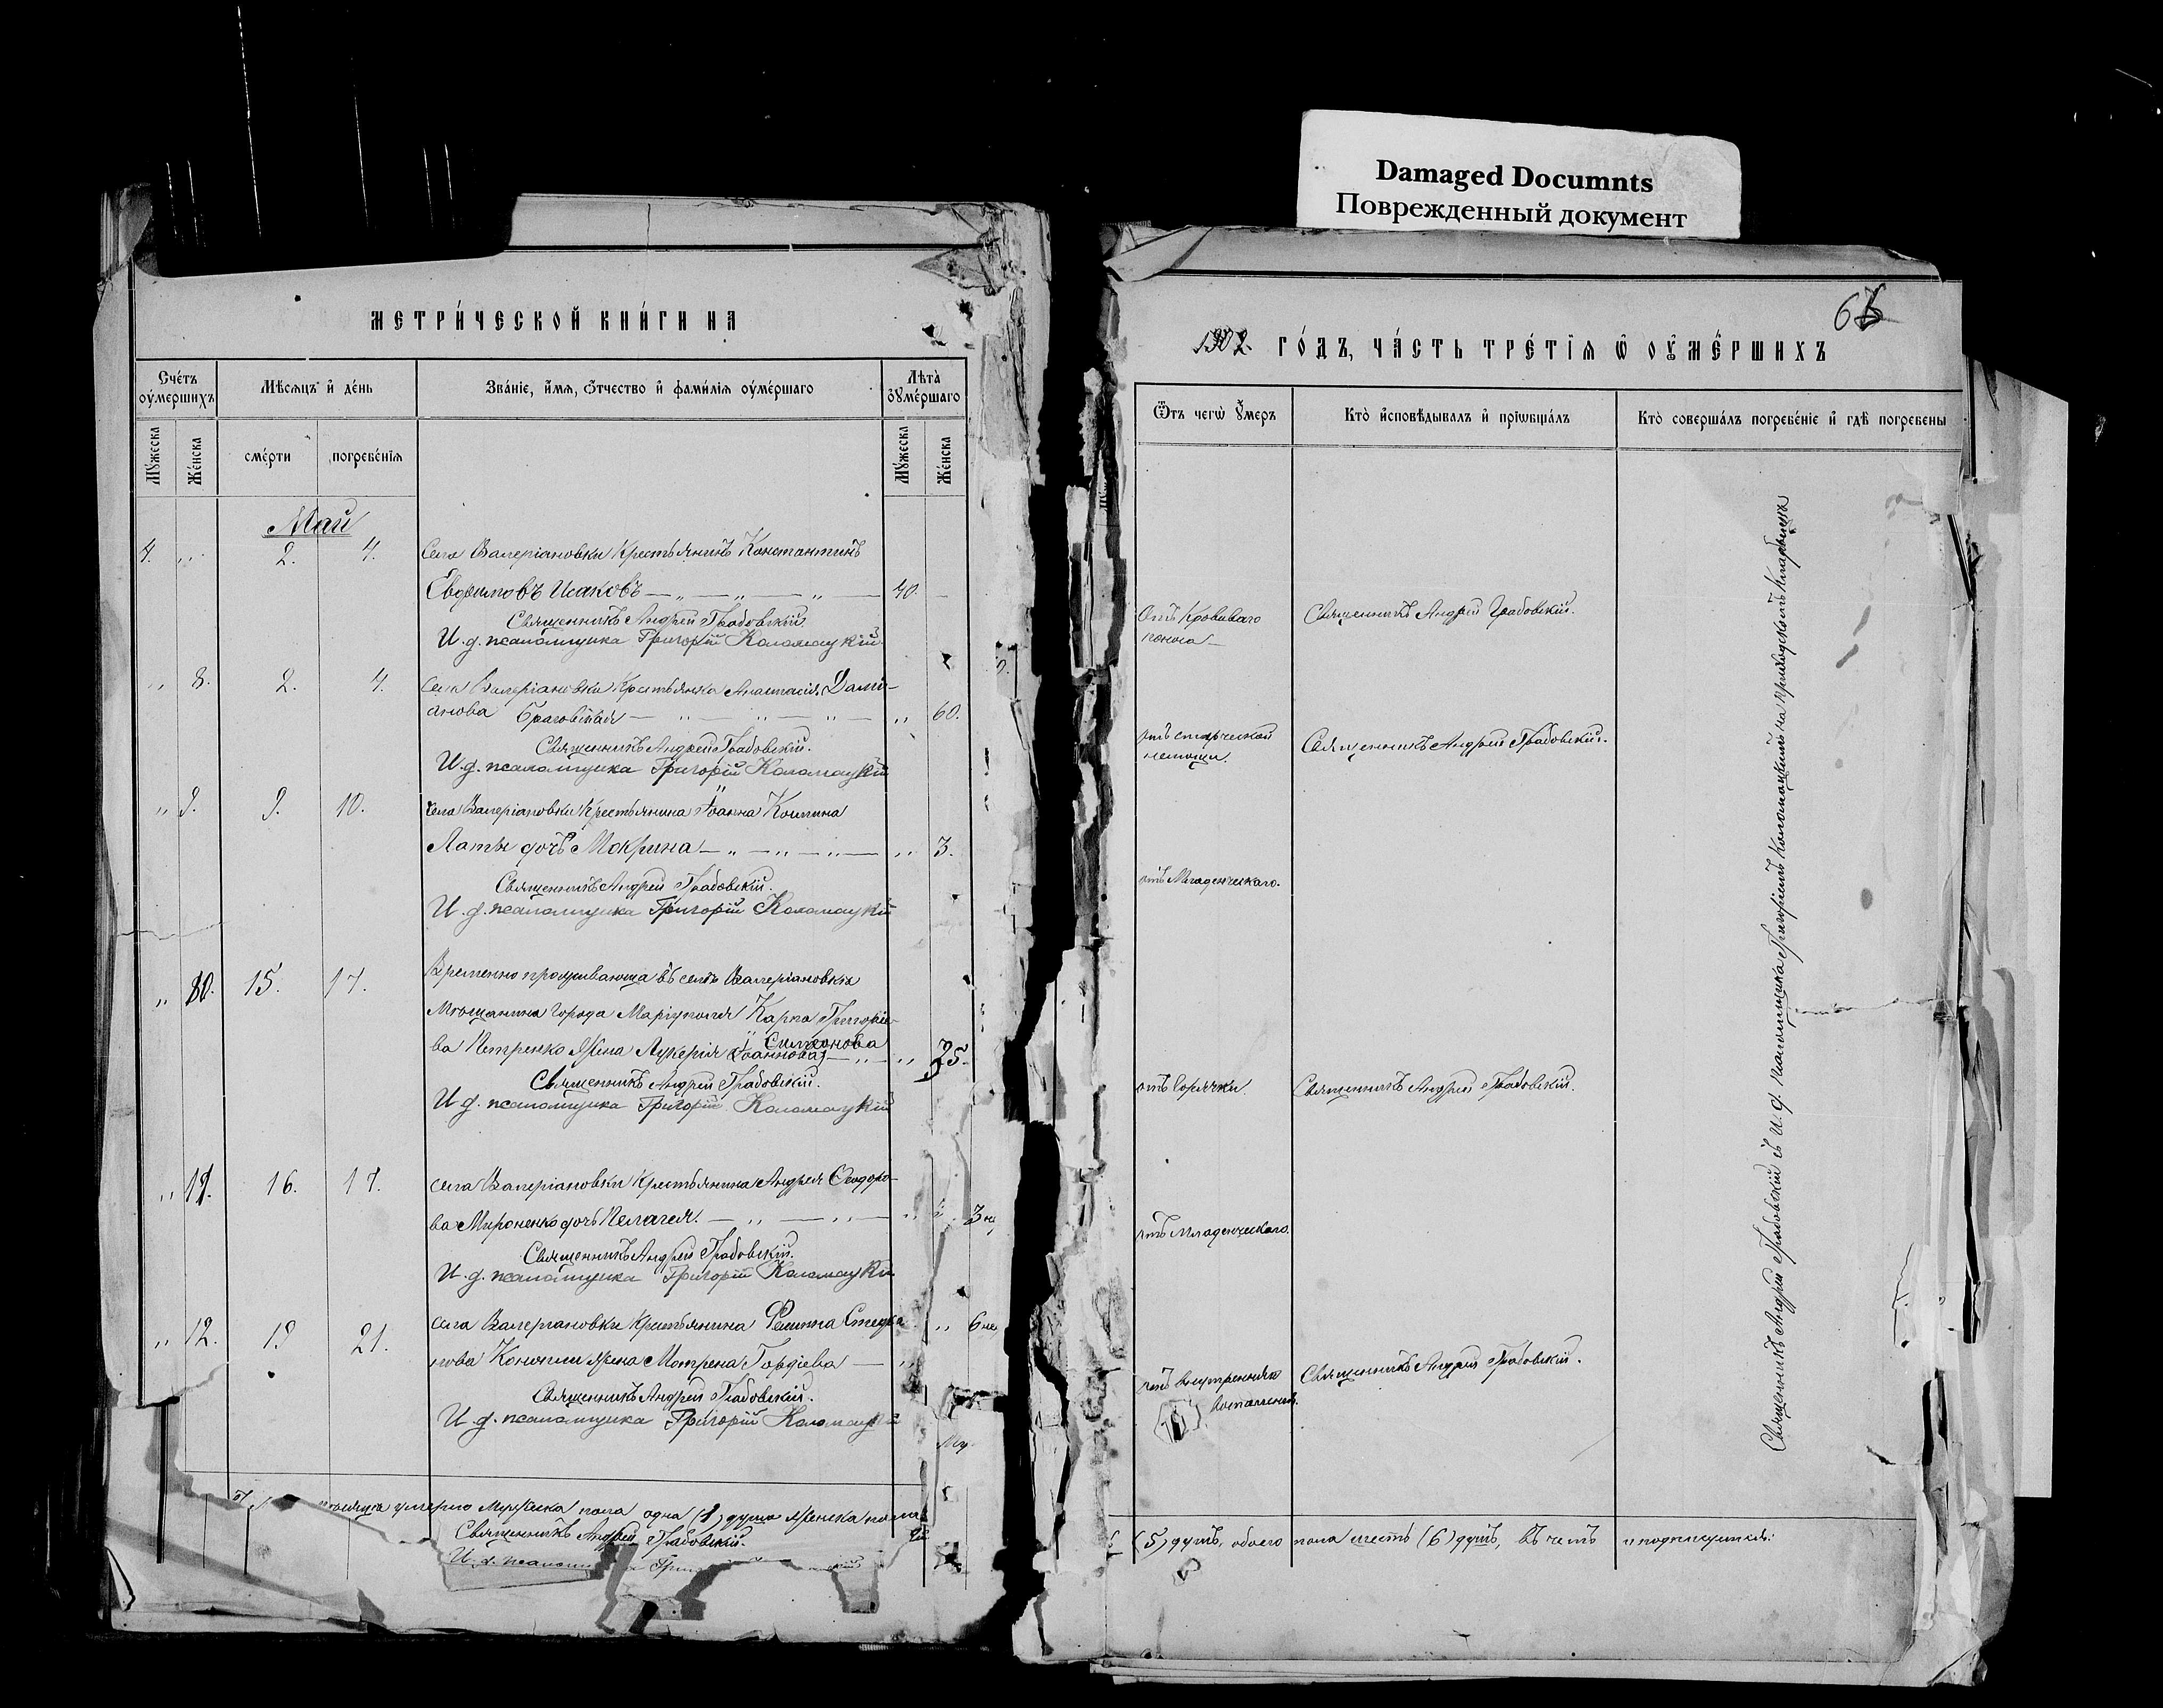 Damaged Documnts
Поврежденный документ
МЕТРИ́ЧЕСКОЙ КНИ́ГИ НА
1902. ГО́ДЪ, ЧА́СТЬ ТРЕ́ТІѦ Ѡ ОУ҆МЕ́РШИХЪ
Сче́тъ оу҆ме́ршихъ
Мѣ́сѧцъ и҆ де́нь
Зва́нїе, и҆́мѧ, ѻ҆́тчество и҆ фами́лїѧ оу҆ме́ршаго
Лѣта̀ оу҆ме́ршаго
Ѿ чегѡ̀ оу҆́меръ
Кто̀ и҆сповѣ́дывалъ и҆ прїѡбща́лъ
Кто̀ соверша́лъ погребе́нїе и҆ гдѣ̀ погребены̀
Мꙋ́жеска
Же́нска
сме́рти
погребе́нїѧ
Мꙋ́жеска
Же́нска
Май
4. „ 2. 4. Села Валеріановки Крестьянинъ Константинъ
Евфимовъ Исаковъ — „ — „ — „ — 40. —
Священникъ Андрей Грабовскій.
И. д. псаломщика Григорій Коломацкій
Отъ кроваваго
поноса —
Священникъ Андрей Грабовскій.
„ 8. 2. 4. Села Валеріановки Крестьянка Анастасія Дамі-
анова — „ — „ — „ — „ 60.
Священникъ Андрей Грабовскій.
И. д. псаломщика Григорій Коломацкій
отъ старческой
немощи.
Священникъ Андрей Грабовскій.
„ 9. 9. 10. села Валеріановки Крестьянина Іоанна
Латы дочь Мокрина — „ — „ — „ — „ 3.
Священникъ Андрей Грабовскій.
И. д. псаломщика Григорій Коломацкій
отъ Младенческаго.
„ 10. 15. 17. Временно проживающа въ селѣ Валеріановкѣ
Мѣщанина города Маріуполя Карпа Григоріе-
ва Петренко жена Лукерія Іоаннова Симеонова — „ — „ 35.
Священникъ Андрей Грабовскій.
И. д. псаломщика Григорій Коломацкій
отъ горячки
Священникъ Андрей Грабовскій.
„ 11. 16. 17. села Валеріановки Крестьянина Андрея Ѳеодоро-
ва Мироненко дочь Пелагея. — „ — „ — „ 3 н
Священникъ Андрей Грабовскій.
И. д. псаломщика Григорій Коломацкі
отъ Младенческаго.
„ 12. 19 21. села Валеріановки Крестьянина
жена Мотрена Гордіева —
Священникъ Андрей Грабовскій.
И. д. псаломщика Григорій Коломацкій
отъ внутренняго
воспаленія.
Священникъ Андрей Грабовскій.
Священникъ Андрей Грабовскій съ и. д. псаломщика Григоріемъ Коломацкимъ на приходскомъ кладбищѣ
умерло Мужеска пола одна (1) душа женска пола
(5) душъ, обоего пола шесть (6) душъ, въ чемъ и подписуемся:
Священникъ Андрей Грабовскій.
И. д. псалом